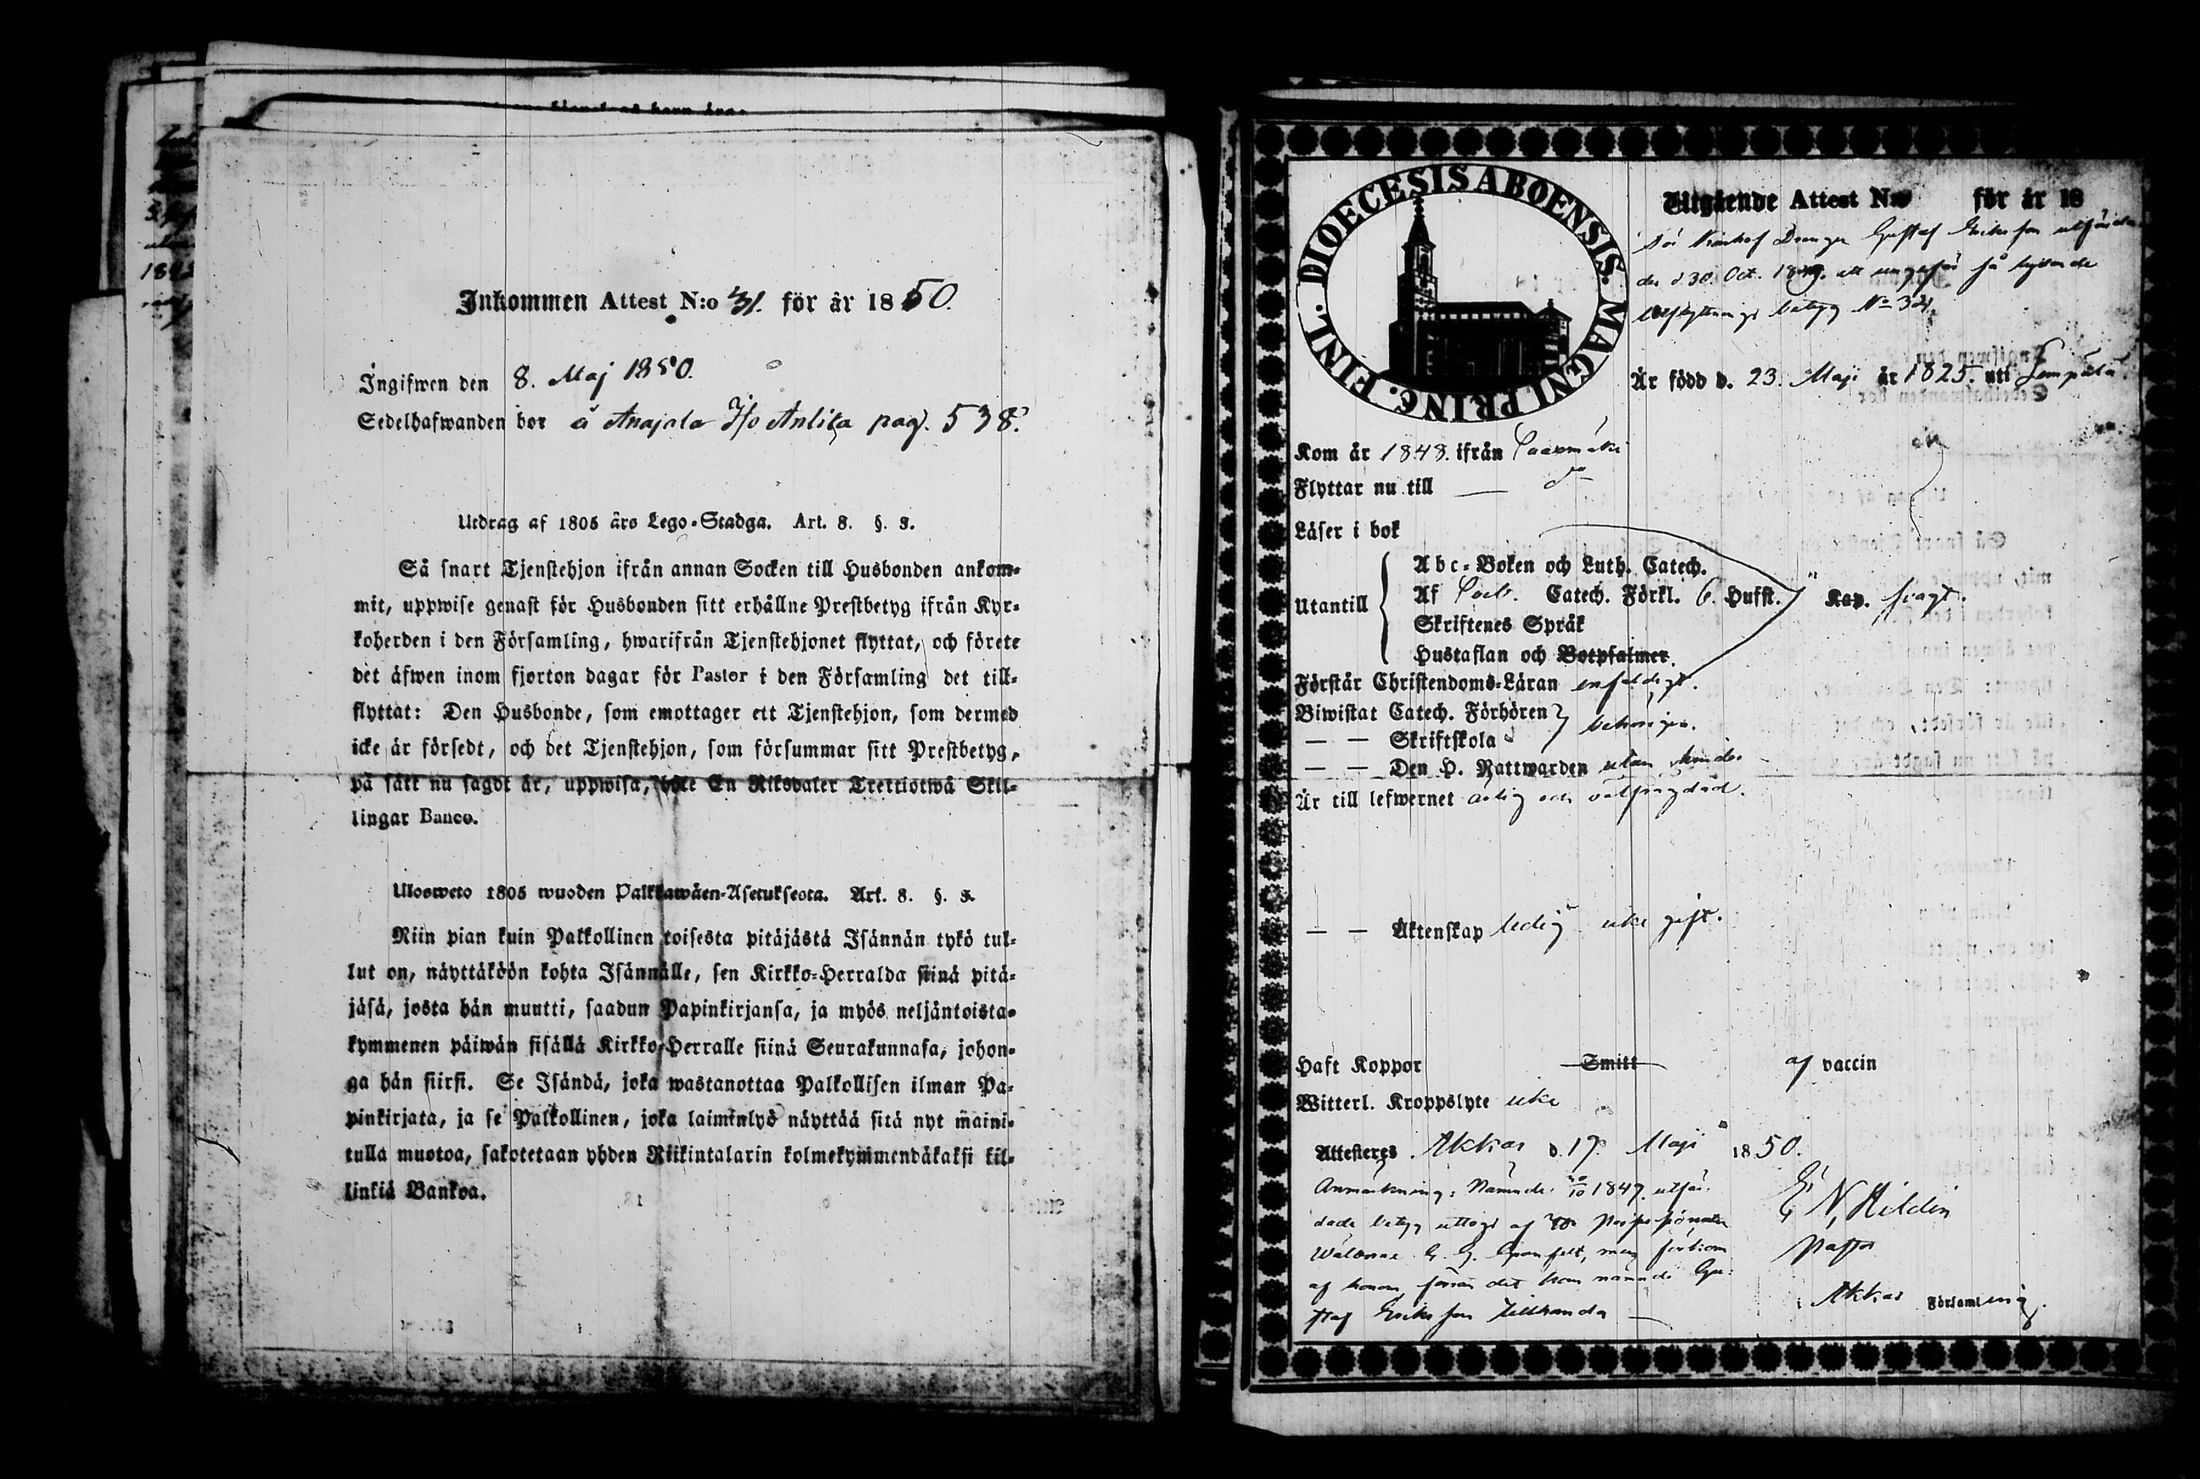 Inkommen Attest N:o 31. för år 1850.
Ingifwen den 8. Maj 1850.
Sedelhafwanden bor å Anajala Hs Anlila pag. 538.
Utdrag af 1805 års Lego-Stadga. Art. 8. §. 3.
Så snart Tjenstehjon ifrån annan Socken till Husbonden ankom-
mit, uppwise genast för Husbonden sitt erhållne Prestbetyg ifrån Kyr-
koherden i den Församling, hwarifrån Tjenstehjonet flyttat, och förete
det äfwen inom fjorton dagar för Pastor i den Församling det till-
flyttat: Den Husbonde, som emottager ett Tjenstehjon, som dermed
icke är försedt, och det Tjenstehjon, som försummar sitt Prestbetyg,
på sätt nu sagdt är, uppwisa, böte En Riksdaler Trettiotwå Skil-
lingar Banco.
Ulosweto 1805 wuoden Palkkawäen-Asetuksesta. Art. 8. §. 3.
Niin pian kuin Palkollinen toisesta pitäjästä Isännän tykö tul-
lut on, näyttäköön kohta Isännälle, sen Kirkko-Herralda siinä pitä-
jäsä, josta hän muutti, saadun Papinkirjansa, ja myös neljäntoista-
kymmenen päiwän sisällä Kirkko-Herralle siinä Seurakunnasa, johon-
ga hän siirsi. Se Isändä, joka wastanottaa Palkollisen ilman Pa-
pinkirjata, ja se Palkollinen, joka laiminlyö näyttää sitä nyt maini-
tulla muotoa, sakotetaan yhden Riikintalarin kolmekymmendäkaksi kil-
linkiä Bankoa.
DIOECESIS ABOENSIS. MAGNI PRINC. FINL.
Utgående Attest N:o för år 18
Drengen Gustaf Eriksson utfärda-
des d. 30. Oct. 1849. ett ungefär så lydande
betyg No 321.
Är född d. 23. Maji år 1825. uti Lempälä
Kom år 1848. ifrån Saarmäki
Flyttar nu till — d:o
Läser i bok
Utantill
Abc-Boken och Luth. Catech.
Af Sveb. Catech. Förkl. 6. Hufst. Kap. swagt.
Skriftenes Språk
Hustaflan och Botpsalmer.
Förstår Christendoms-Läran enfaldigt.
Biwistat Catech. Förhören behörigen.
— — Skriftskola
— — Den H. Nattwarden utan hinder
Är till lefwernet ärlig och välfrägdad.
— — Äktenskap ledig icke gift.
Haft Koppor Smitt af vaccin
Witterl. Kroppslyte icke
Attesteres Akkas d. 17 Maji 1850.
Anmärkning: Nämnde 30/10 1847. utfär-
dade betyg uttogs af
men förkom
af honom förrän det kom nämnde Gu-
staf Eriksson tillhanda —
N. Hildén
Pastor
i Akkas Församling.